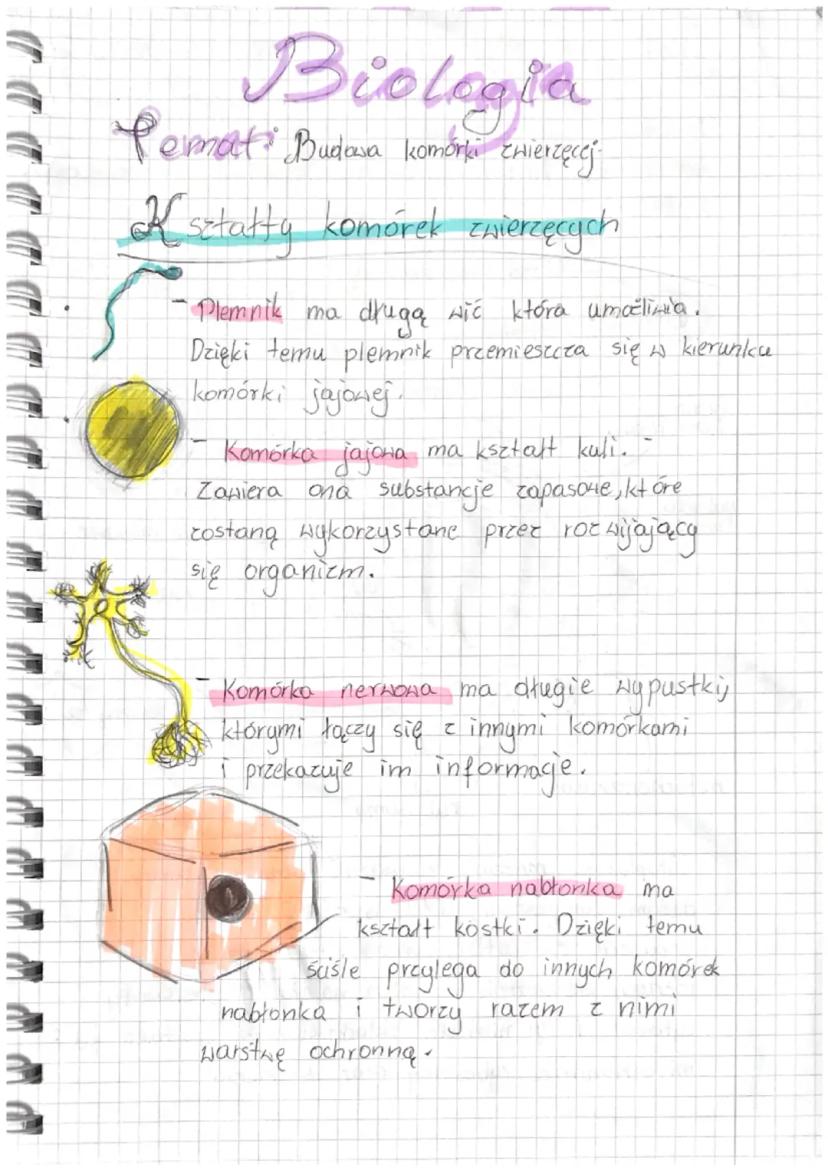 Biologia
Temat: Budowa komórki zwierzęcej
Kształty komórek zwierzęcych
- Plemnik ma długą wić która umożliwia.
Dzięki temu plemnik przemieszcza się w kierunku
komórki jajowej.
- Komórka jajowa ma kształt kuli. -
Zawiera ona substancje zapasowe, które
zostaną wykorzystane przez rozwijający
się organizm.
- Komórka nerwowa ma długie wypustki,
którymi łączy się z innymi komórkami
i przekazuje im informacje.
- Komórka nabłonka ma
kształt kostki. Dzięki temu
ściśle przylega do innych komórek
nabłonka i tworzy razem z nimi
warstwę ochronną.